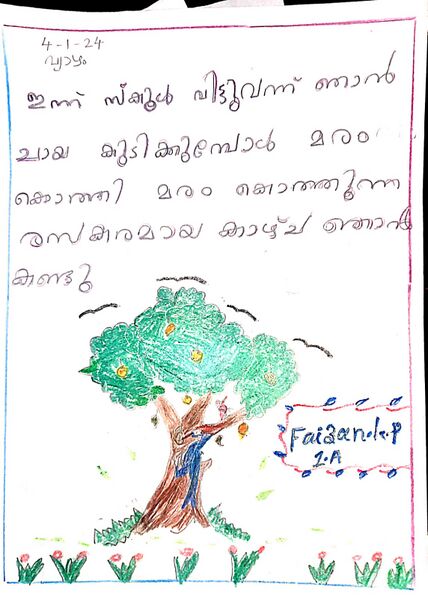 4-1-24
വ്യാഴം
ഇന്ന് സ്കൂൾ വിട്ടുവന്ന് ഞാൻ
ചായ കുടിക്കുമ്പോൾ മരം
കൊത്തി മരം കൊത്തുന്ന
രസകരമായ കാഴ്ച ഞാൻ
കണ്ടു
Faizan.k.p
1.A